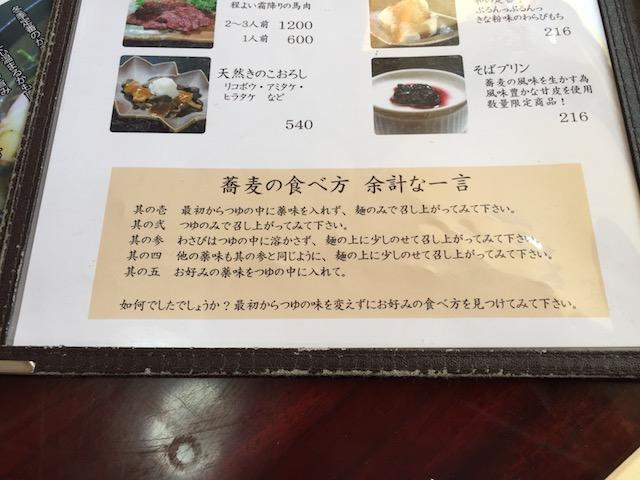 程よい霜降りの馬肉
2〜3人前 1200
1人前 600
天然きのこおろし
リコボウ・アミタケ・
ヒラタケ など
540
ぷるんっぷるんっ
きな粉味のわらびもち
216
そばプリン
蕎麦の風味を生かす為
風味豊かな甘皮を使用
数量限定商品!
216
蕎麦の食べ方 余計な一言
其の壱 最初からつゆの中に薬味を入れず、麺のみで召し上がってみて下さい。
其の弐 つゆのみで召し上がってみて下さい。
其の参 わさびはつゆの中に溶かさず、麺の上に少しのせて召し上がってみて下さい。
其の四 他の薬味も其の参と同じように、麺の上に少しのせて召し上がってみて下さい。
其の五 お好みの薬味をつゆの中に入れて。
如何でしたでしょうか?最初からつゆの味を変えずにお好みの食べ方を見つけてみて下さい。